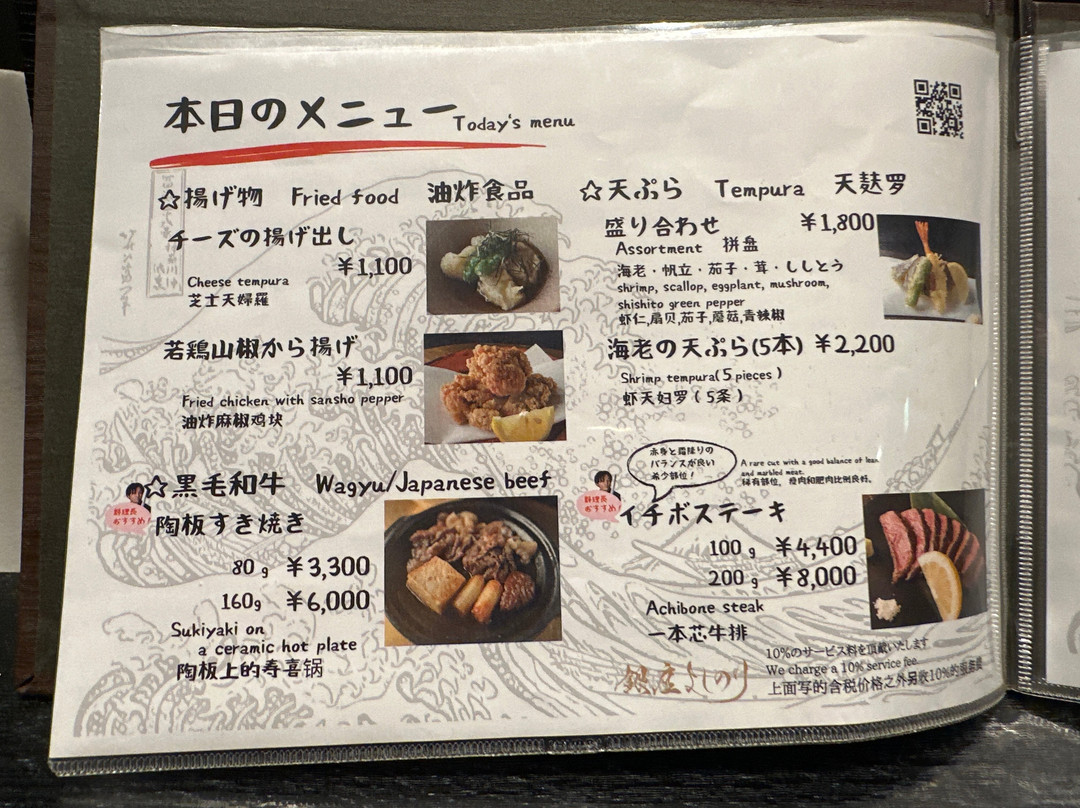 本日のメニュー Today's menu
☆揚げ物 Fried food 油炸食品
チーズの揚げ出し
¥1,100
Cheese tempura
芝士天婦羅
若鶏山椒から揚げ
¥1,100
Fried chicken with sansho pepper
油炸麻椒鸡块
☆黒毛和牛 Wagyu/Japanese beef
料理長
おすすめ
陶板すき焼き
80g ¥3,300
160g ¥6,000
Sukiyaki on
a ceramic hot plate
陶板上的寿喜锅
☆天ぷら Tempura 天麸罗
盛り合わせ ¥1,800
Assortment 拼盘
海老・帆立・茄子・茸・ししとう
shrimp, scallop, eggplant, mushroom,
shishito green pepper
虾仁,扇贝,茄子,蘑菇,青辣椒
海老の天ぷら(5本) ¥2,200
Shrimp tempura(5 pieces)
虾天妇罗(5条)
赤身と霜降りの
バランスが良い
希少部位!
A rare cut with a good balance of lean
and marbled meat.
稀有部位，瘦肉和肥肉比例良好。
料理長
おすすめ
イチボステーキ
100g ¥4,400
200g ¥8,000
Achibone steak
一本芯牛排
銀座よしのり
10%のサービス料を頂戴いたします
We charge a 10% service fee
上面写的含税价格之外另收10%的服务费